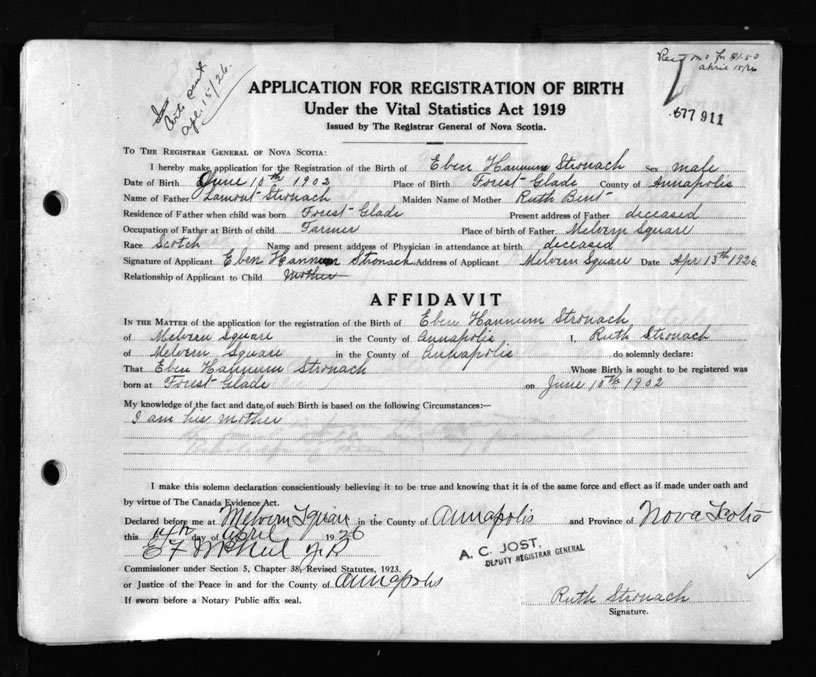 Certs sent
Apr. 15/26.
for $1.50
April 15/26
577 911
APPLICATION FOR REGISTRATION OF BIRTH
Under the Vital Statistics Act 1919
Issued by The Registrar General of Nova Scotia.
TO THE REGISTRAR GENERAL OF NOVA SCOTIA:
I hereby make application for the Registration of the Birth of Eben Hannum Stronach Sex male
Date of Birth June 10th 1902 Place of Birth Forest Glade County of Annapolis
Name of Father Lamont Stronach Maiden Name of Mother Ruth Bent
Residence of Father when child was born Forest Glade Present address of Father deceased
Occupation of Father at Birth of child Farmer Place of birth of Father Melvern Square
Race Scotch Name and present address of Physician in attendance at birth deceased
Signature of Applicant Eben Hannum Stronach Address of Applicant Melvern Square Date Apr 13th 1926
Relationship of Applicant to Child Mother
AFFIDAVIT
IN THE MATTER of the application for the registration of the Birth of Eben Hannum Stronach
of Melvern Square in the County of Annapolis. I, Ruth Stronach
of Melvern Square in the County of Annapolis do solemnly declare:
That Eben Hannum Stronach Whose Birth is sought to be registered was
born at Forest Glade on June 10th 1902
My knowledge of the fact and date of such Birth is based on the following Circumstances:—
I am his Mother
I make this solemn declaration conscientiously believing it to be true and knowing that it is of the same force and effect as if made under oath and
by virtue of The Canada Evidence Act.
Declared before me at Melvern Square in the County of Annapolis and Province of Nova Scotia
this day of April 1926
E F McNeil J P
A. C. JOST,
DEPUTY REGISTRAR GENERAL
Commissioner under Section 5, Chapter 38, Revised Statutes, 1923.
or Justice of the Peace in and for the County of Annapolis
If sworn before a Notary Public affix seal.
Ruth Stronach
Signature.